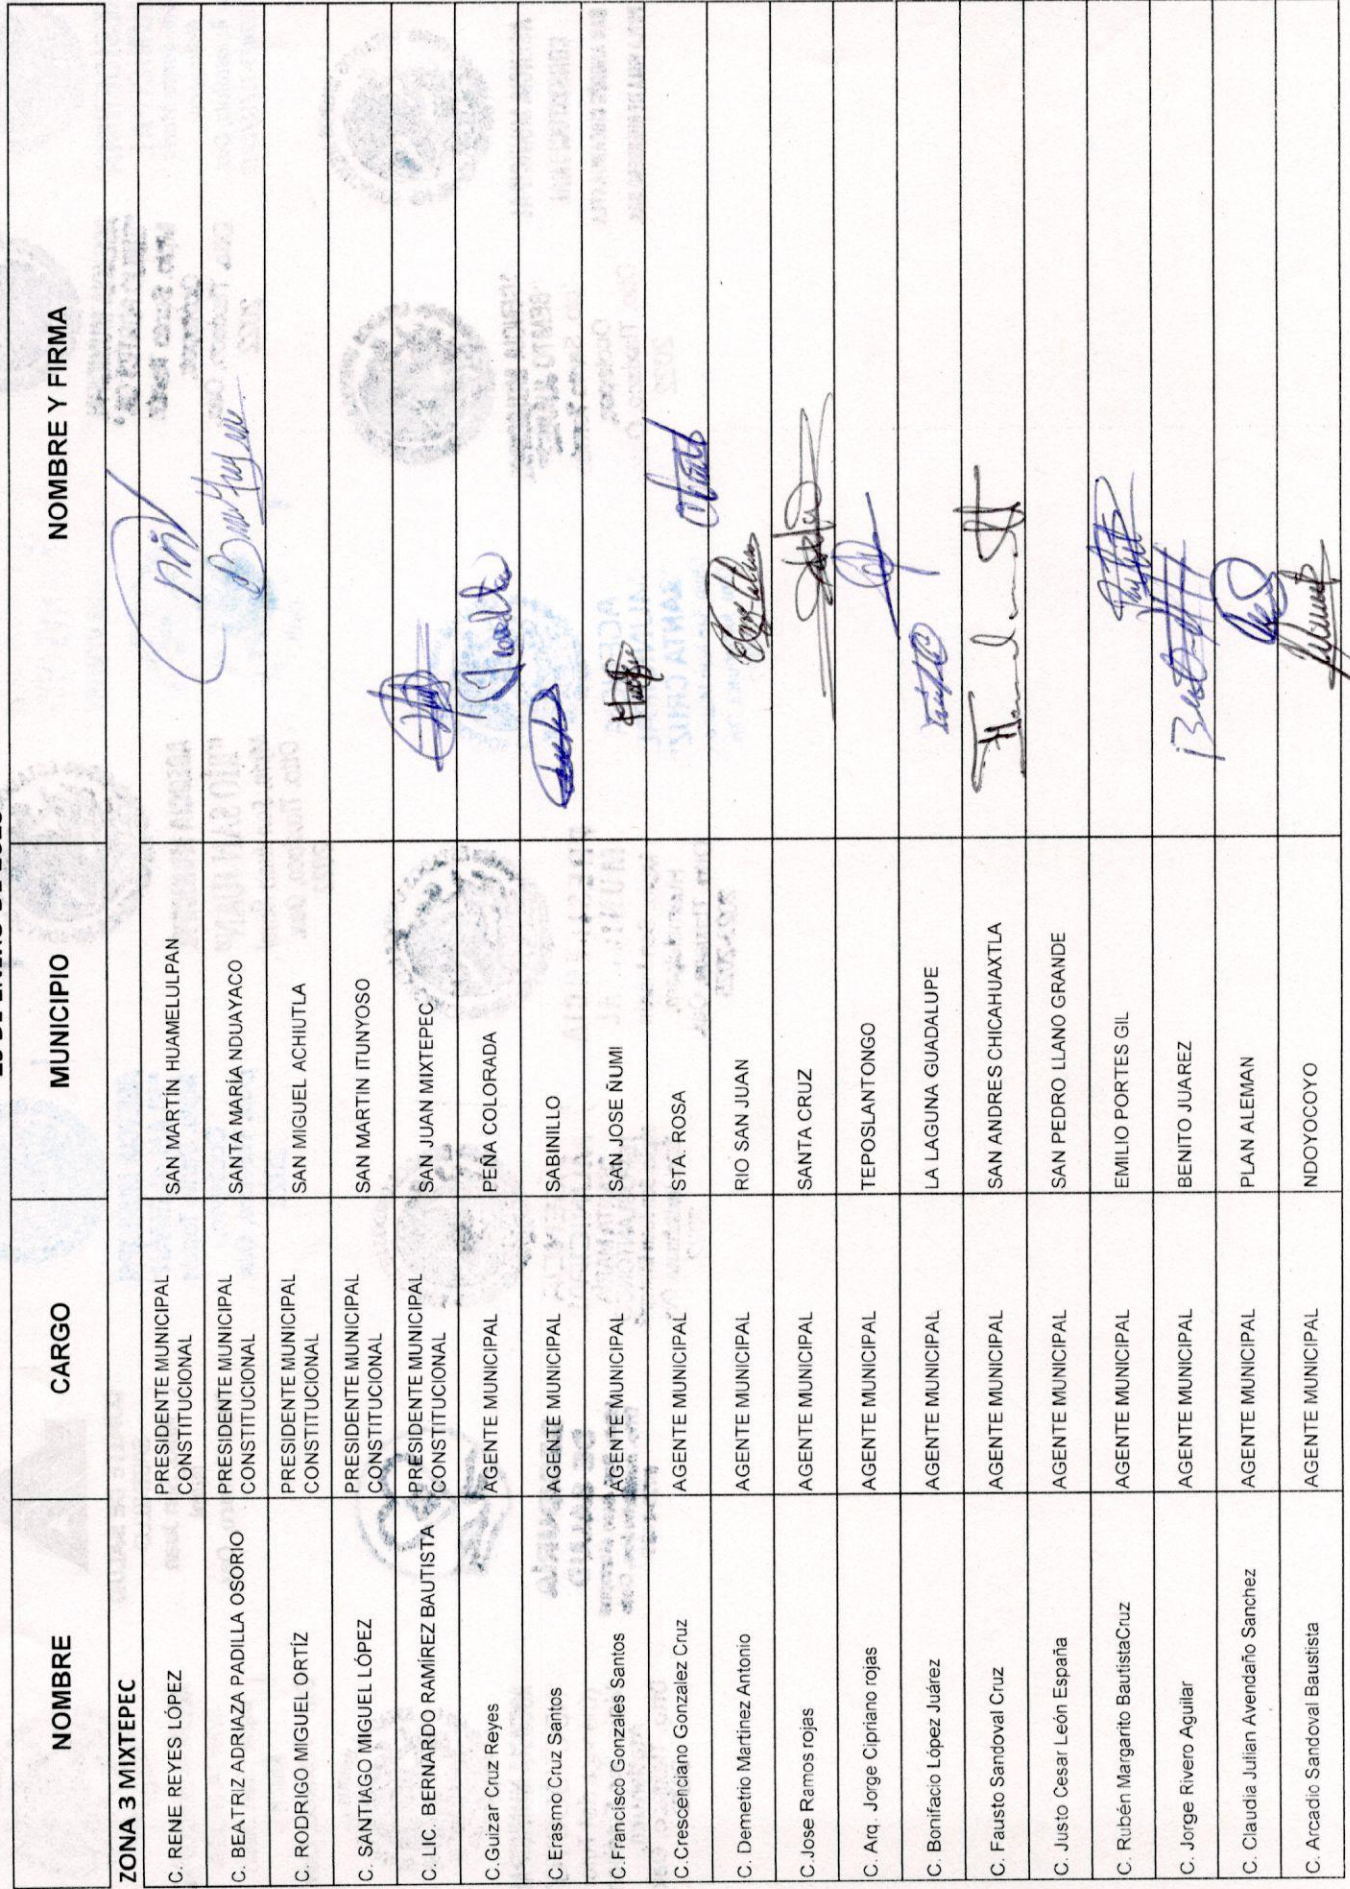 NOMBRE CARGO MUNICIPIO NOMBRE Y FIRMA
ZONA 3 MIXTEPEC
C. RENE REYES LÓPEZ PRESIDENTE MUNICIPAL CONSTITUCIONAL SAN MARTÍN HUAMELULPAN
C. BEATRIZ ADRIAZA PADILLA OSORIO PRESIDENTE MUNICIPAL CONSTITUCIONAL SANTA MARÍA NDUAYACO
C. RODRIGO MIGUEL ORTÍZ PRESIDENTE MUNICIPAL CONSTITUCIONAL SAN MIGUEL ACHIUTLA
C. SANTIAGO MIGUEL LÓPEZ PRESIDENTE MUNICIPAL CONSTITUCIONAL SAN MARTIN ITUNYOSO
C. LIC. BERNARDO RAMÍREZ BAUTISTA PRESIDENTE MUNICIPAL CONSTITUCIONAL SAN JUAN MIXTEPEC
C.Guizar Cruz Reyes AGENTE MUNICIPAL PEÑA COLORADA
C. Erasmo Cruz Santos AGENTE MUNICIPAL SABINILLO
C.Francisco Gonzales Santos AGENTE MUNICIPAL SAN JOSE ÑUMI
C.Crescenciano Gonzalez Cruz AGENTE MUNICIPAL STA. ROSA
C. Demetrio Martinez Antonio AGENTE MUNICIPAL RIO SAN JUAN
C.Jose Ramos rojas AGENTE MUNICIPAL SANTA CRUZ
C. Arq. Jorge Cipriano rojas AGENTE MUNICIPAL TEPOSLANTONGO
C. Bonifacio López Juárez AGENTE MUNICIPAL LA LAGUNA GUADALUPE
C. Fausto Sandoval Cruz AGENTE MUNICIPAL SAN ANDRES CHICAHUAXTLA
C. Justo Cesar León España AGENTE MUNICIPAL SAN PEDRO LLANO GRANDE
C. Rubén Margarito BautistaCruz AGENTE MUNICIPAL EMILIO PORTES GIL
C. Jorge Rivero Aguilar AGENTE MUNICIPAL BENITO JUAREZ
C. Claudia Julian Avendaño Sanchez AGENTE MUNICIPAL PLAN ALEMAN
C. Arcadio Sandoval Baustista AGENTE MUNICIPAL NDOYOCOYO